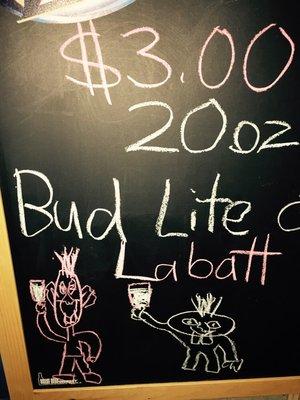 $3.00
20oz
Bud Lite o
Labatt